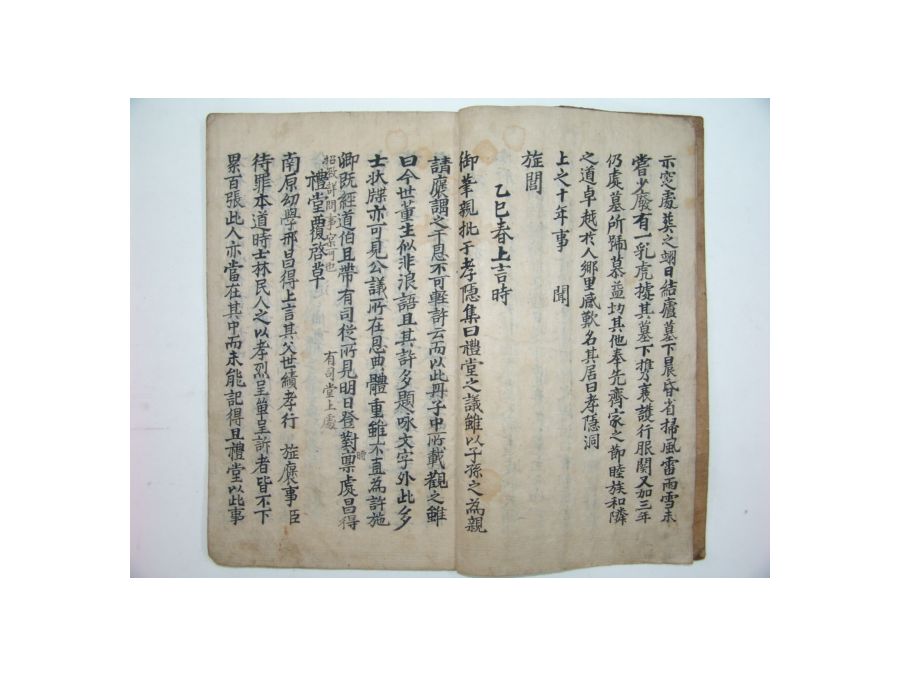 亦窆處葬之翊日結廬墓下晨昏省掃風雷雨雪未
嘗少廢有一乳虎據其墓下擕衷護行服闋又加三年
仍處墓所號慕益切其他奉先齊家之節睦族和隣
之道卓越於人鄉里感歎名其居曰孝隱洞
上之十年事 聞
旌閭
乙巳春上言時
御筆親批于孝隱集曰禮堂之議雖以子孫之為親
請褒謂之干恩不可輕許云而以此冊子中所載觀之雖
曰今世董生似非浪語且其許多題咏文字外此多
士狀牒亦可見公議所在恩典體重雖不直為許施
卿既經道伯且帶有司從所見明日登對時稟處昌得
招致詳問事宜可也 有司堂上處
禮堂覆啓草
南原幼學邢昌得上言其父世績孝行 旌褒事臣
待罪本道時士林民人之以孝烈呈單呈訴者皆不下
累百張此人亦當在其中而未能記得且禮堂以此事